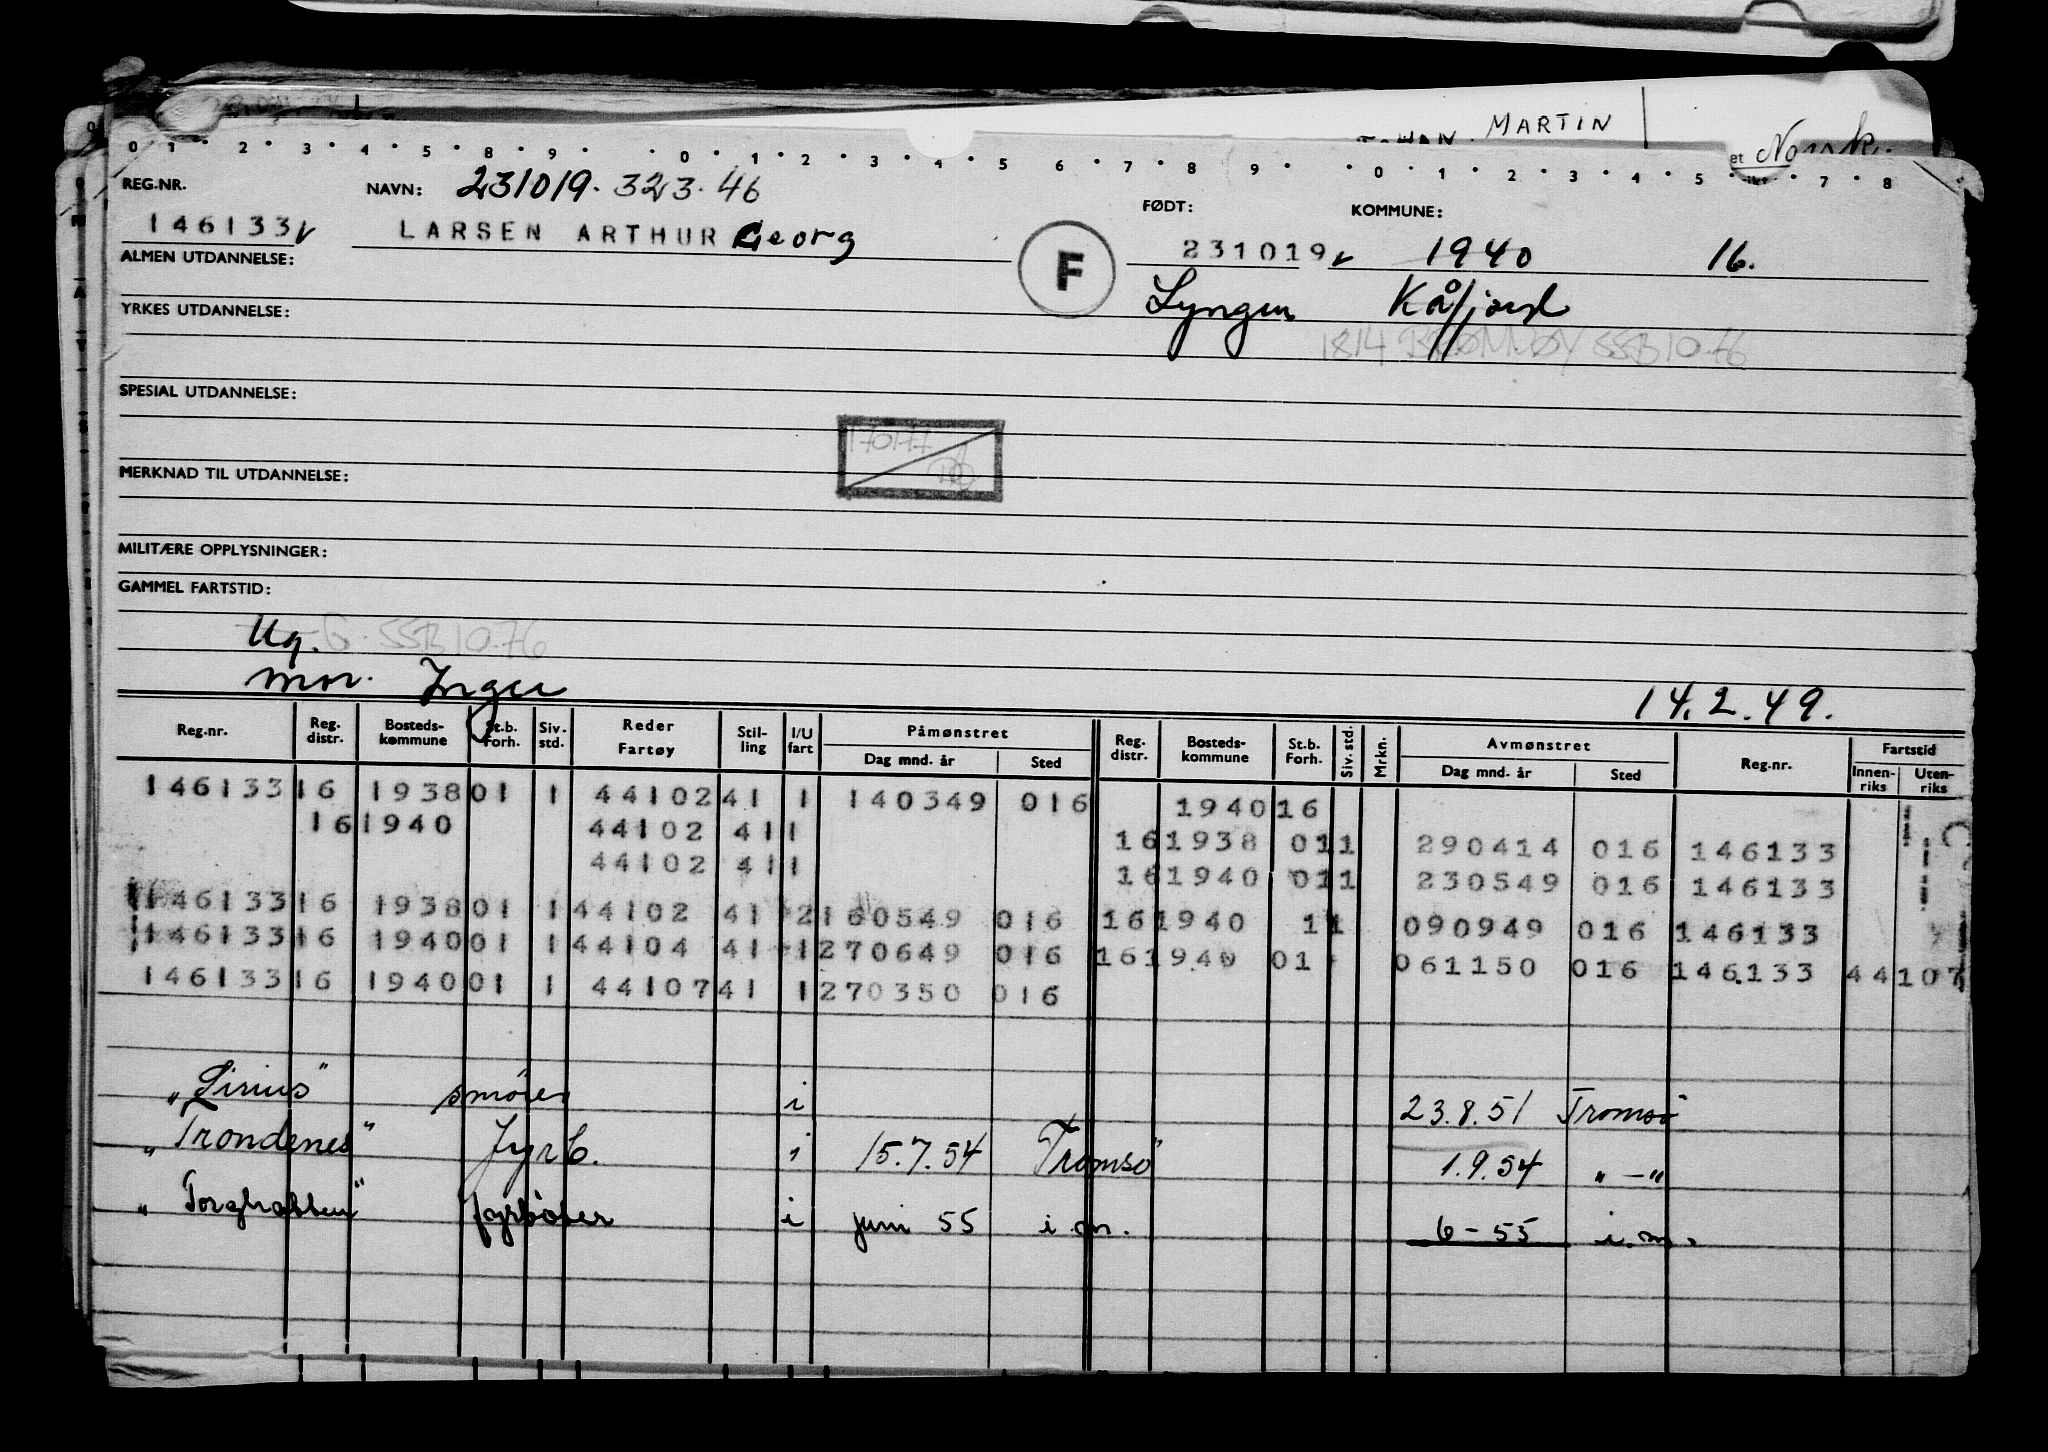 JOHAN MARTIN
et Norsk.
0 1 2 3 4 5 8 9 0 1 2 3 4 5 6 7 8 9 0 1 2 3 4 5 7 8
REG.NR. NAVN: 231019. 323.46 FØDT: KOMMUNE:
146133 v LARSEN ARTHUR Georg F 231019 v 1940 16.
ALMEN UTDANNELSE: Lyngen Kåfjord
YRKES UTDANNELSE: 1814 BRØNNØY SSB 10.76
SPESIAL UTDANNELSE:
170177
MERKNAD TIL UTDANNELSE:
MILITÆRE OPPLYSNINGER:
GAMMEL FARTSTID:
Ug. G. SSB 10.76
mor. Inger 14.2.49.
Reg.nr. Reg. distr. Bosteds-kommune St.b. Forh. Siv. std. Reder Fartøy Stil-ling I/U fart Påmønstret Dag mnd. år Sted Reg. distr. Bosteds-kommune St.b. Forh. Siv. std. Mrkn. Avmønstret Dag mnd. år Sted Reg.nr. Fartstid Innen-riks Uten-riks
146133 16 1938 01 1 44102 41 1 140349 016 1940 16
16 1940 44102 41 1 16 1938 01 1 290414 016 146133
44102 41 1 16 1940 01 1 230549 016 146133
146133 16 1938 01 1 44102 41 2 160549 016 16 1940 1 1 090949 016 146133
146133 16 1940 01 1 44104 41 1 270649 016 16 1940 01 061150 016 146133 44107
146133 16 1940 01 1 44107 41 1 270350 016
"Sirius" smører i 23.8.51 Tromsö
"Trondenes" fyrb. i 15.7.54 Tromsö 1.9.54 " - "
"Torghatten" fyrbøter i juni 55 i.m. 6-55 i.m.